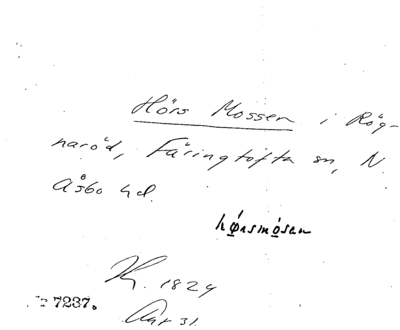 Hörs Mossen i Rög-
naröd, Färingtofta sn, N.
Åsbo hd.
hǿrsmósen
1824
7237.
31.